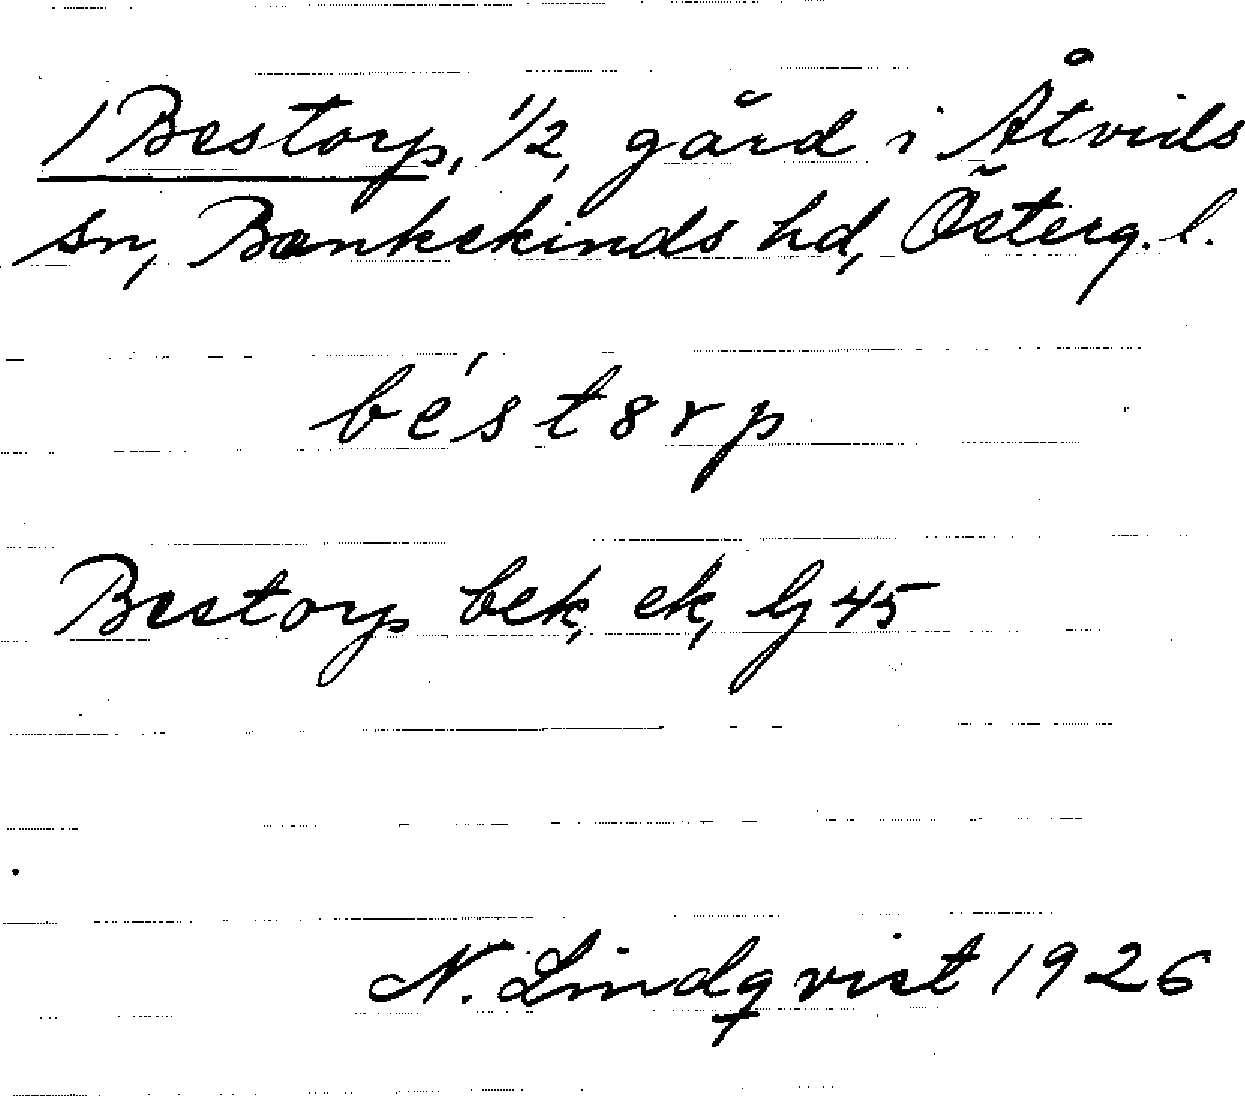 1 Bestorp, 1/2, gård i Åtvids
sn, Bankekinds hd, Österg. l.
béstɞrp
Bestorp bek, ek, lj 45
N. Lindqvist 1926